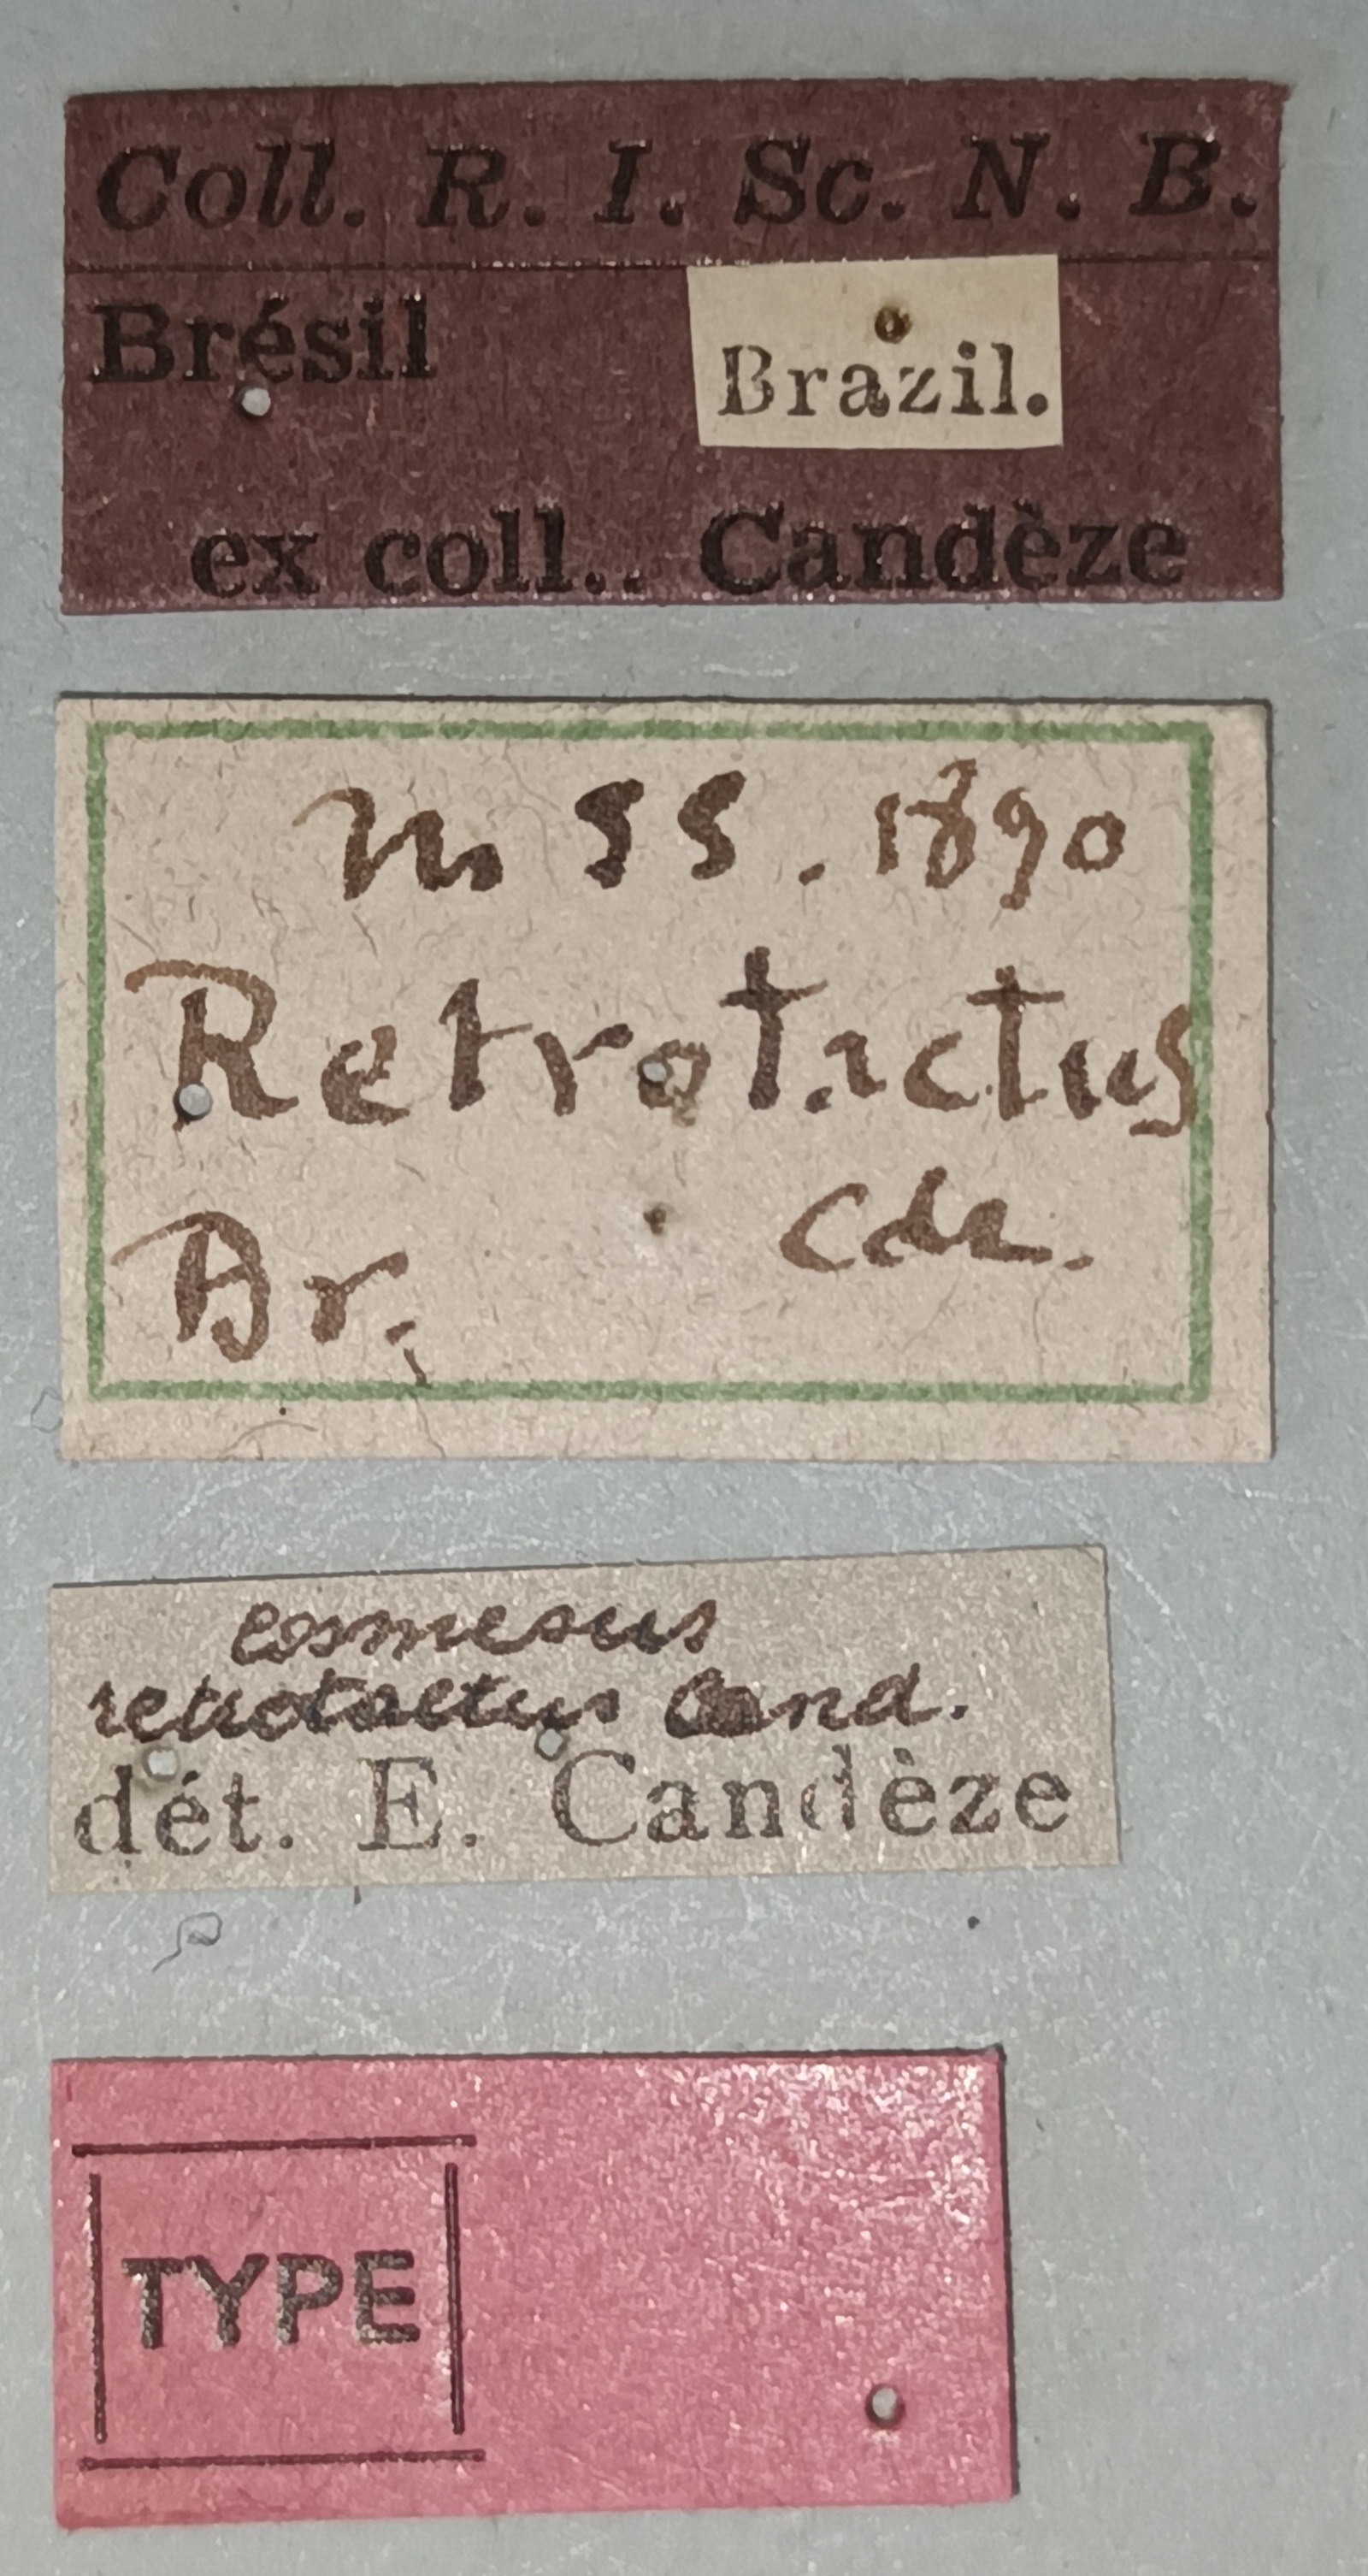 Coll. R. I. Sc. N. B.
Brésil
Brazil.
ex coll.. Candèze
m ss. 1890
Retrotactus
Cdz.
Br.
cosmesus
retrotactus Cand.
dét. E. Candèze
TYPE